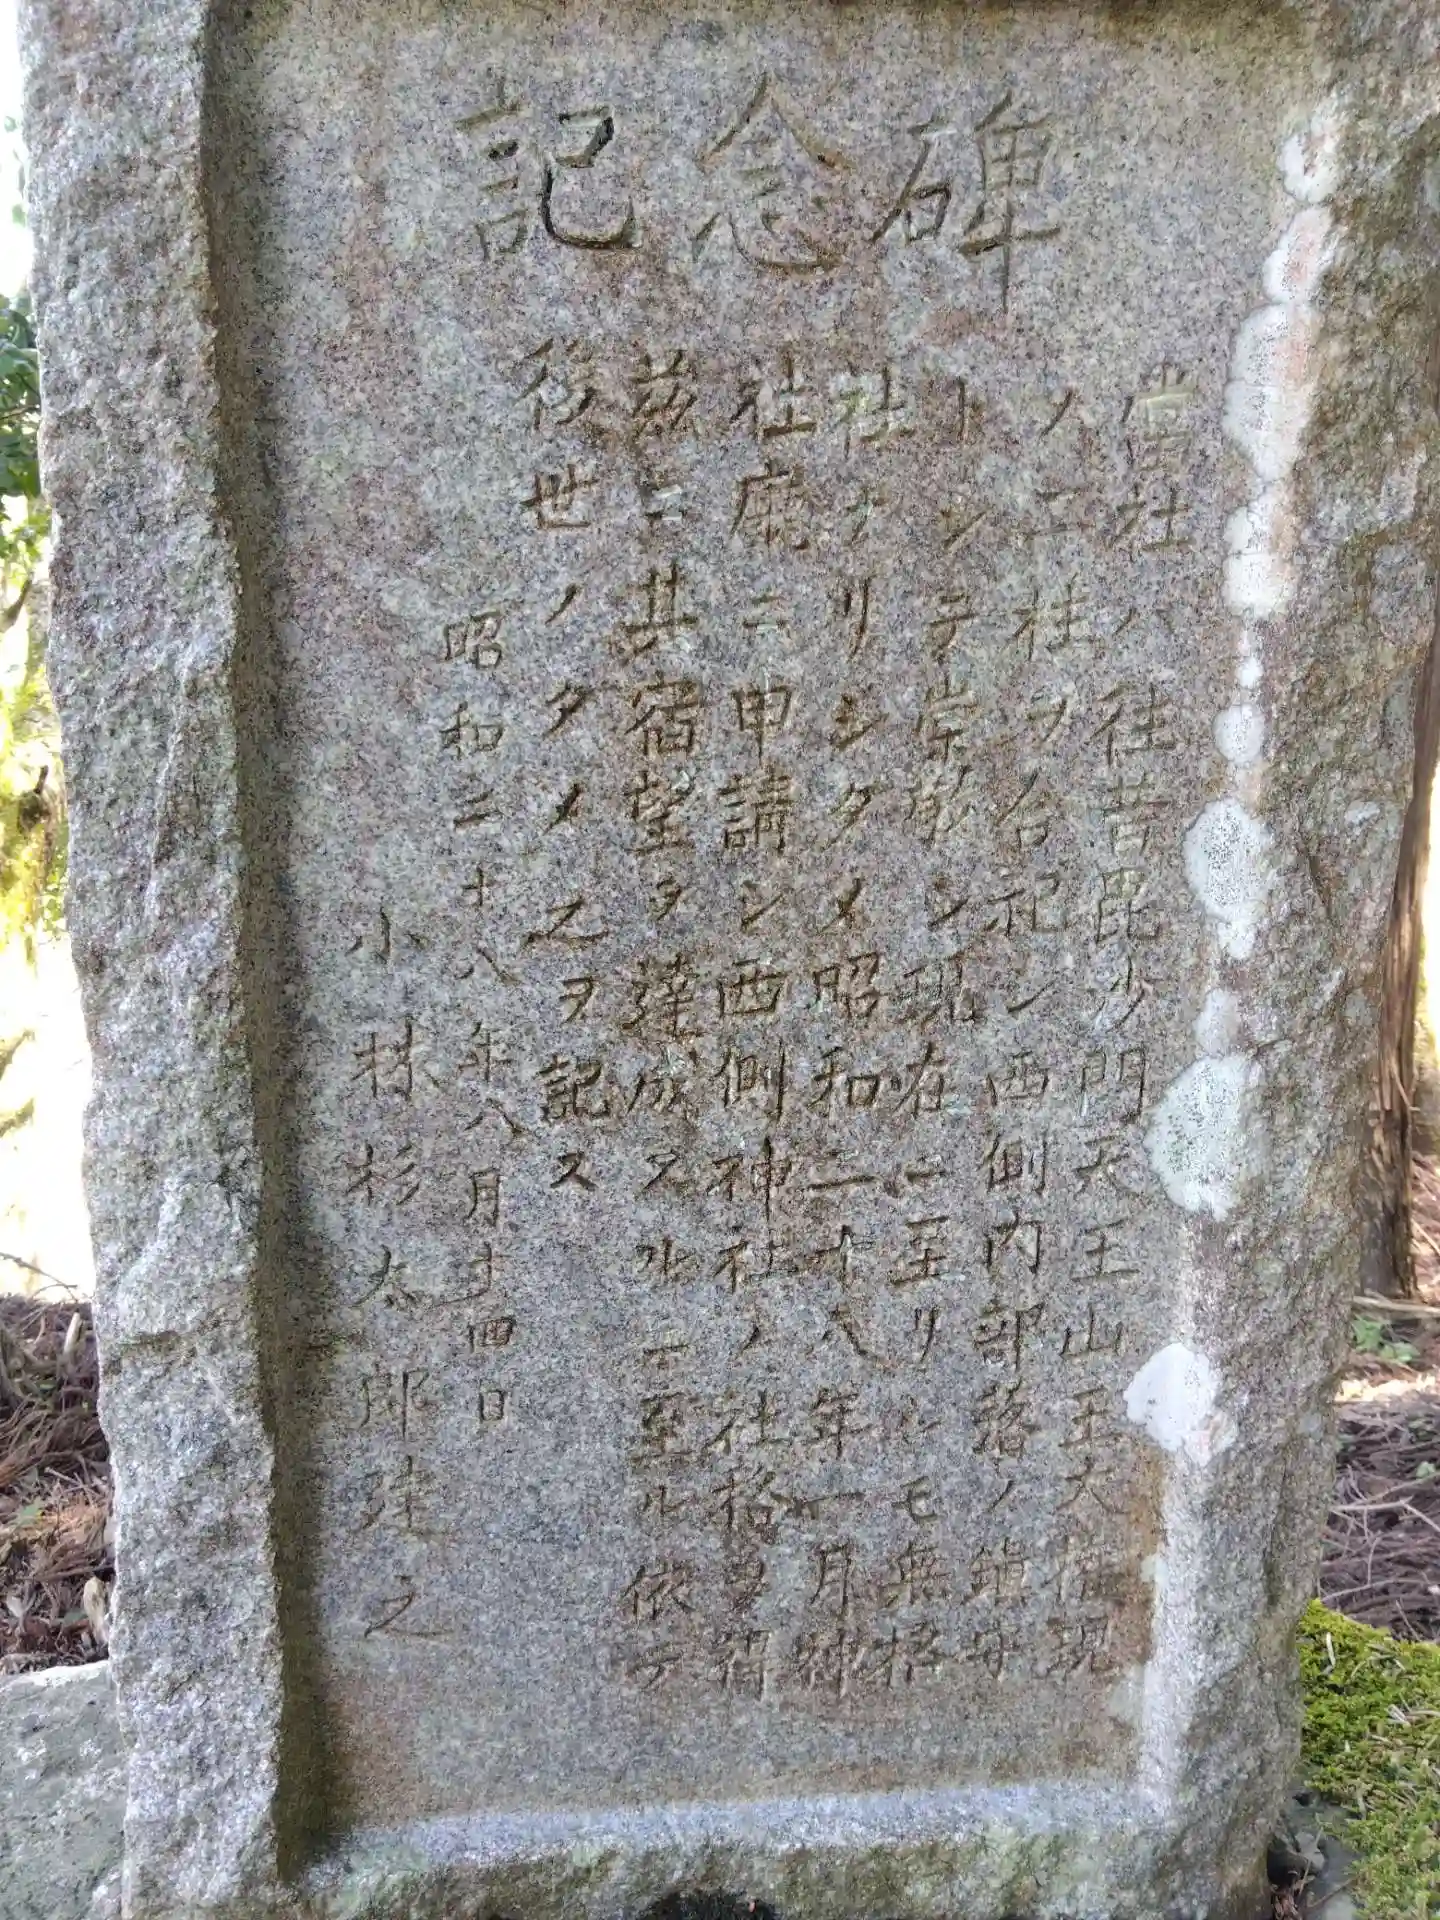 碑念記
當社ハ往昔毘沙門天王山王大権現
ノ二社ヲ合祀シ西側内部落ノ鎮守
トシテ崇敬シ現在ニ至リシモ無格
社ナリシタメ昭和二十八年一月神
社廳ニ申請シ西側神社ノ社格ヲ得
茲ニ其宿望ヲ達成スルニ至ル依テ
後世ノタメ之ヲ記ス
昭和二十八年八月十四日
小林杉太郎建之